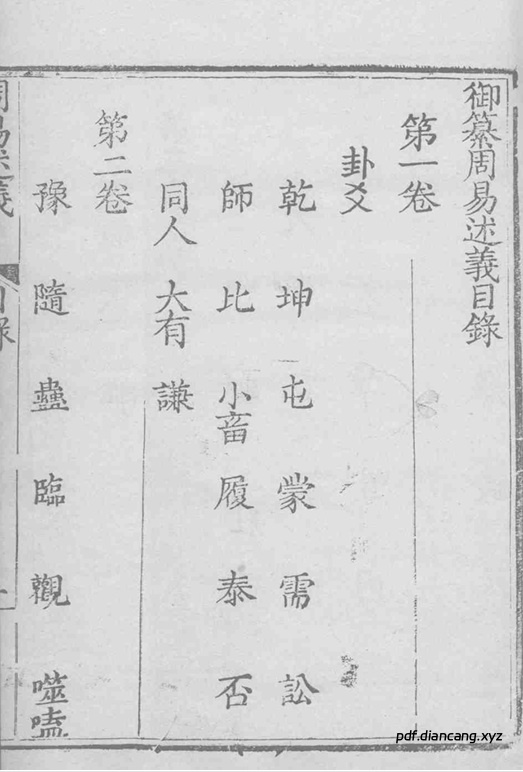 御纂周易述義目錄
第一卷
卦爻
乾 坤 屯 蒙 需 訟
師 比 小畜 履 泰 否
同人 大有 謙
第二卷
豫 隨 蠱 臨 觀 噬嗑
周易述義 目錄
pdf.diancang.xyz